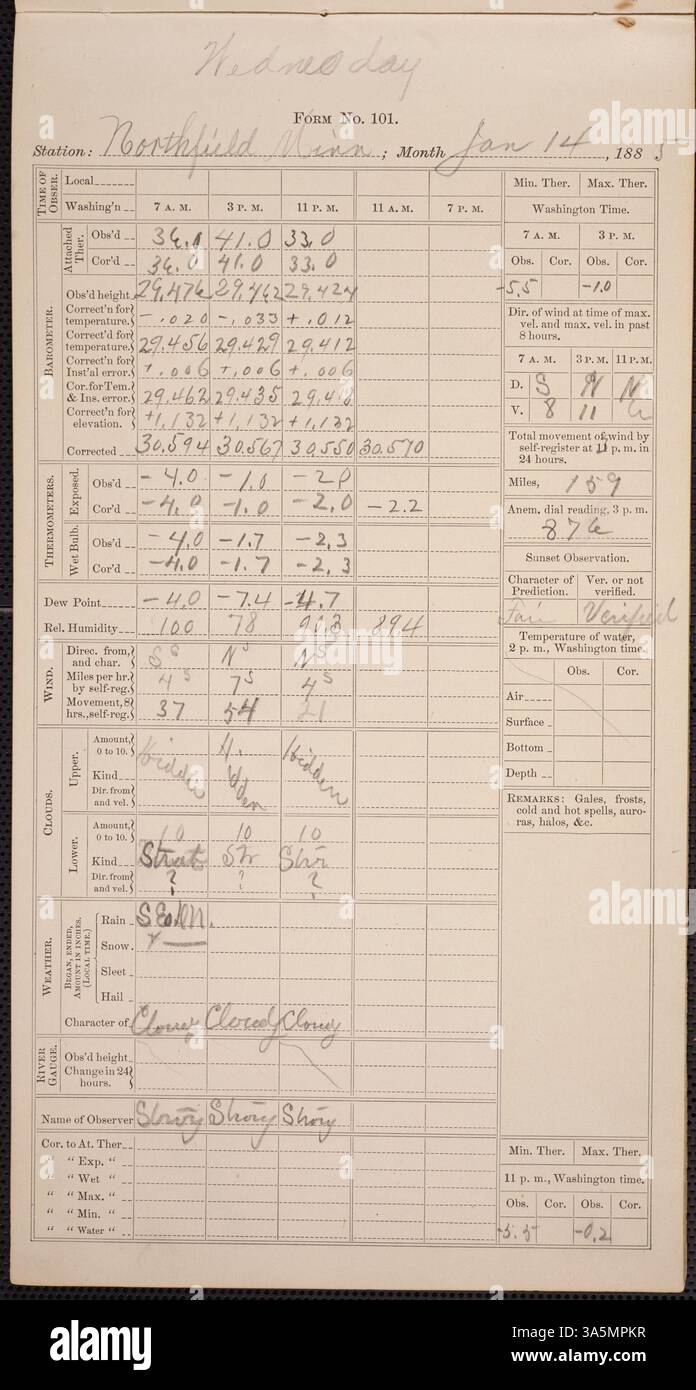 Wednesday
FORM No. 101.
Station: Northfield Minn ; Month Jan 14 , 1885
TIME OF OBSER.
Local
Washing'n 7 A. M. 3 P. M. 11 P. M. 11 A. M. 7 P. M.
BAROMETER.
Attached Ther.
Obs'd 36.0 41.0 33.0
Cor'd 36.0 41.0 33.0
Obs'd height 29.476 29.462 29.424
Correct'n for temperature. -.020 -.033 +.012
Correct'd for temperature. 29.456 29.429 29.412
Correct'n for Inst'al error. +.006 +.006 +.006
Cor. for Tem. & Ins. error. 29.462 29.435 29.418
Correct'n for elevation. +1,132 +1,132 +1,132
Corrected 30.594 30.567 30.550 30.570
THERMOMETERS.
Exposed.
Obs'd -4.0 -1.0 -20
Cor'd -4.0 -1.0 -2.0 -2.2
Wet Bulb.
Obs'd -4.0 -1.7 -2.3
Cor'd -4.0 -1.7 -2.3
Dew Point -4.0 -7.4 -4.7
Rel. Humidity 100 78 90.3 89.4
WIND.
Direc. from, and char. S N N
Miles per hr. by self-reg. 4 7 4
Movement, 8 hrs., self-reg. 37 54 21
CLOUDS.
Upper.
Amount, 0 to 10.
Kind Hidden Hidden
Dir. from and vel.
Lower.
Amount, 0 to 10. 10 10 10
Kind Strat Str
Dir. from and vel. ? ? ?
WEATHER.
BEGAN, ENDED, AMOUNT IN INCHES. (LOCAL TIME.)
Rain
Snow
Sleet
Hail
Character of Cloudy Cloudy Cloudy
RIVER GAUGE.
Obs'd height
Change in 24 hours.
Name of Observer Story Story Story
Cor. to At. Ther
" " Exp. "
" " Wet "
" " Max. "
" " Min. "
" " Water "
Min. Ther. Max. Ther.
Washington Time.
7 A. M. 3 P. M.
Obs. Cor. Obs. Cor.
-5.5 -1.0
Dir. of wind at time of max. vel. and max. vel. in past 8 hours.
7 A. M. 3 P. M. 11 P. M.
D. S N N
V. 8 11 6
Total movement of wind by self-register at 11 p. m. in 24 hours.
Miles, 159
Anem. dial reading, 3 p. m.
876
Sunset Observation.
Character of Prediction. Ver. or not verified.
Fair Verified
Temperature of water, 2 p. m., Washington time.
Obs. Cor.
Air
Surface
Bottom
Depth
REMARKS: Gales, frosts, cold and hot spells, auroras, halos, &c.
Min. Ther. Max. Ther.
11 p. m., Washington time.
Obs. Cor. Obs. Cor.
-5.5 -0.2
alamy
Image ID: 3A5MPKR
www.alamy.com